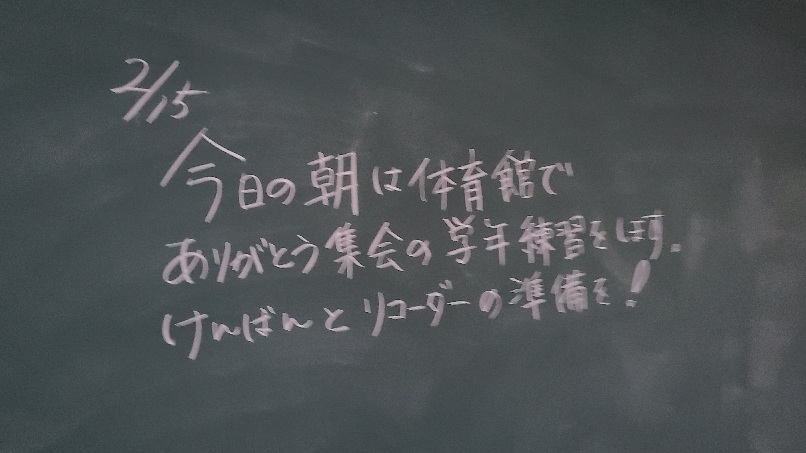 2/15
今日の朝は体育館で
ありがとう集会の学年練習をします。
けんばんとリコーダーの準備を!